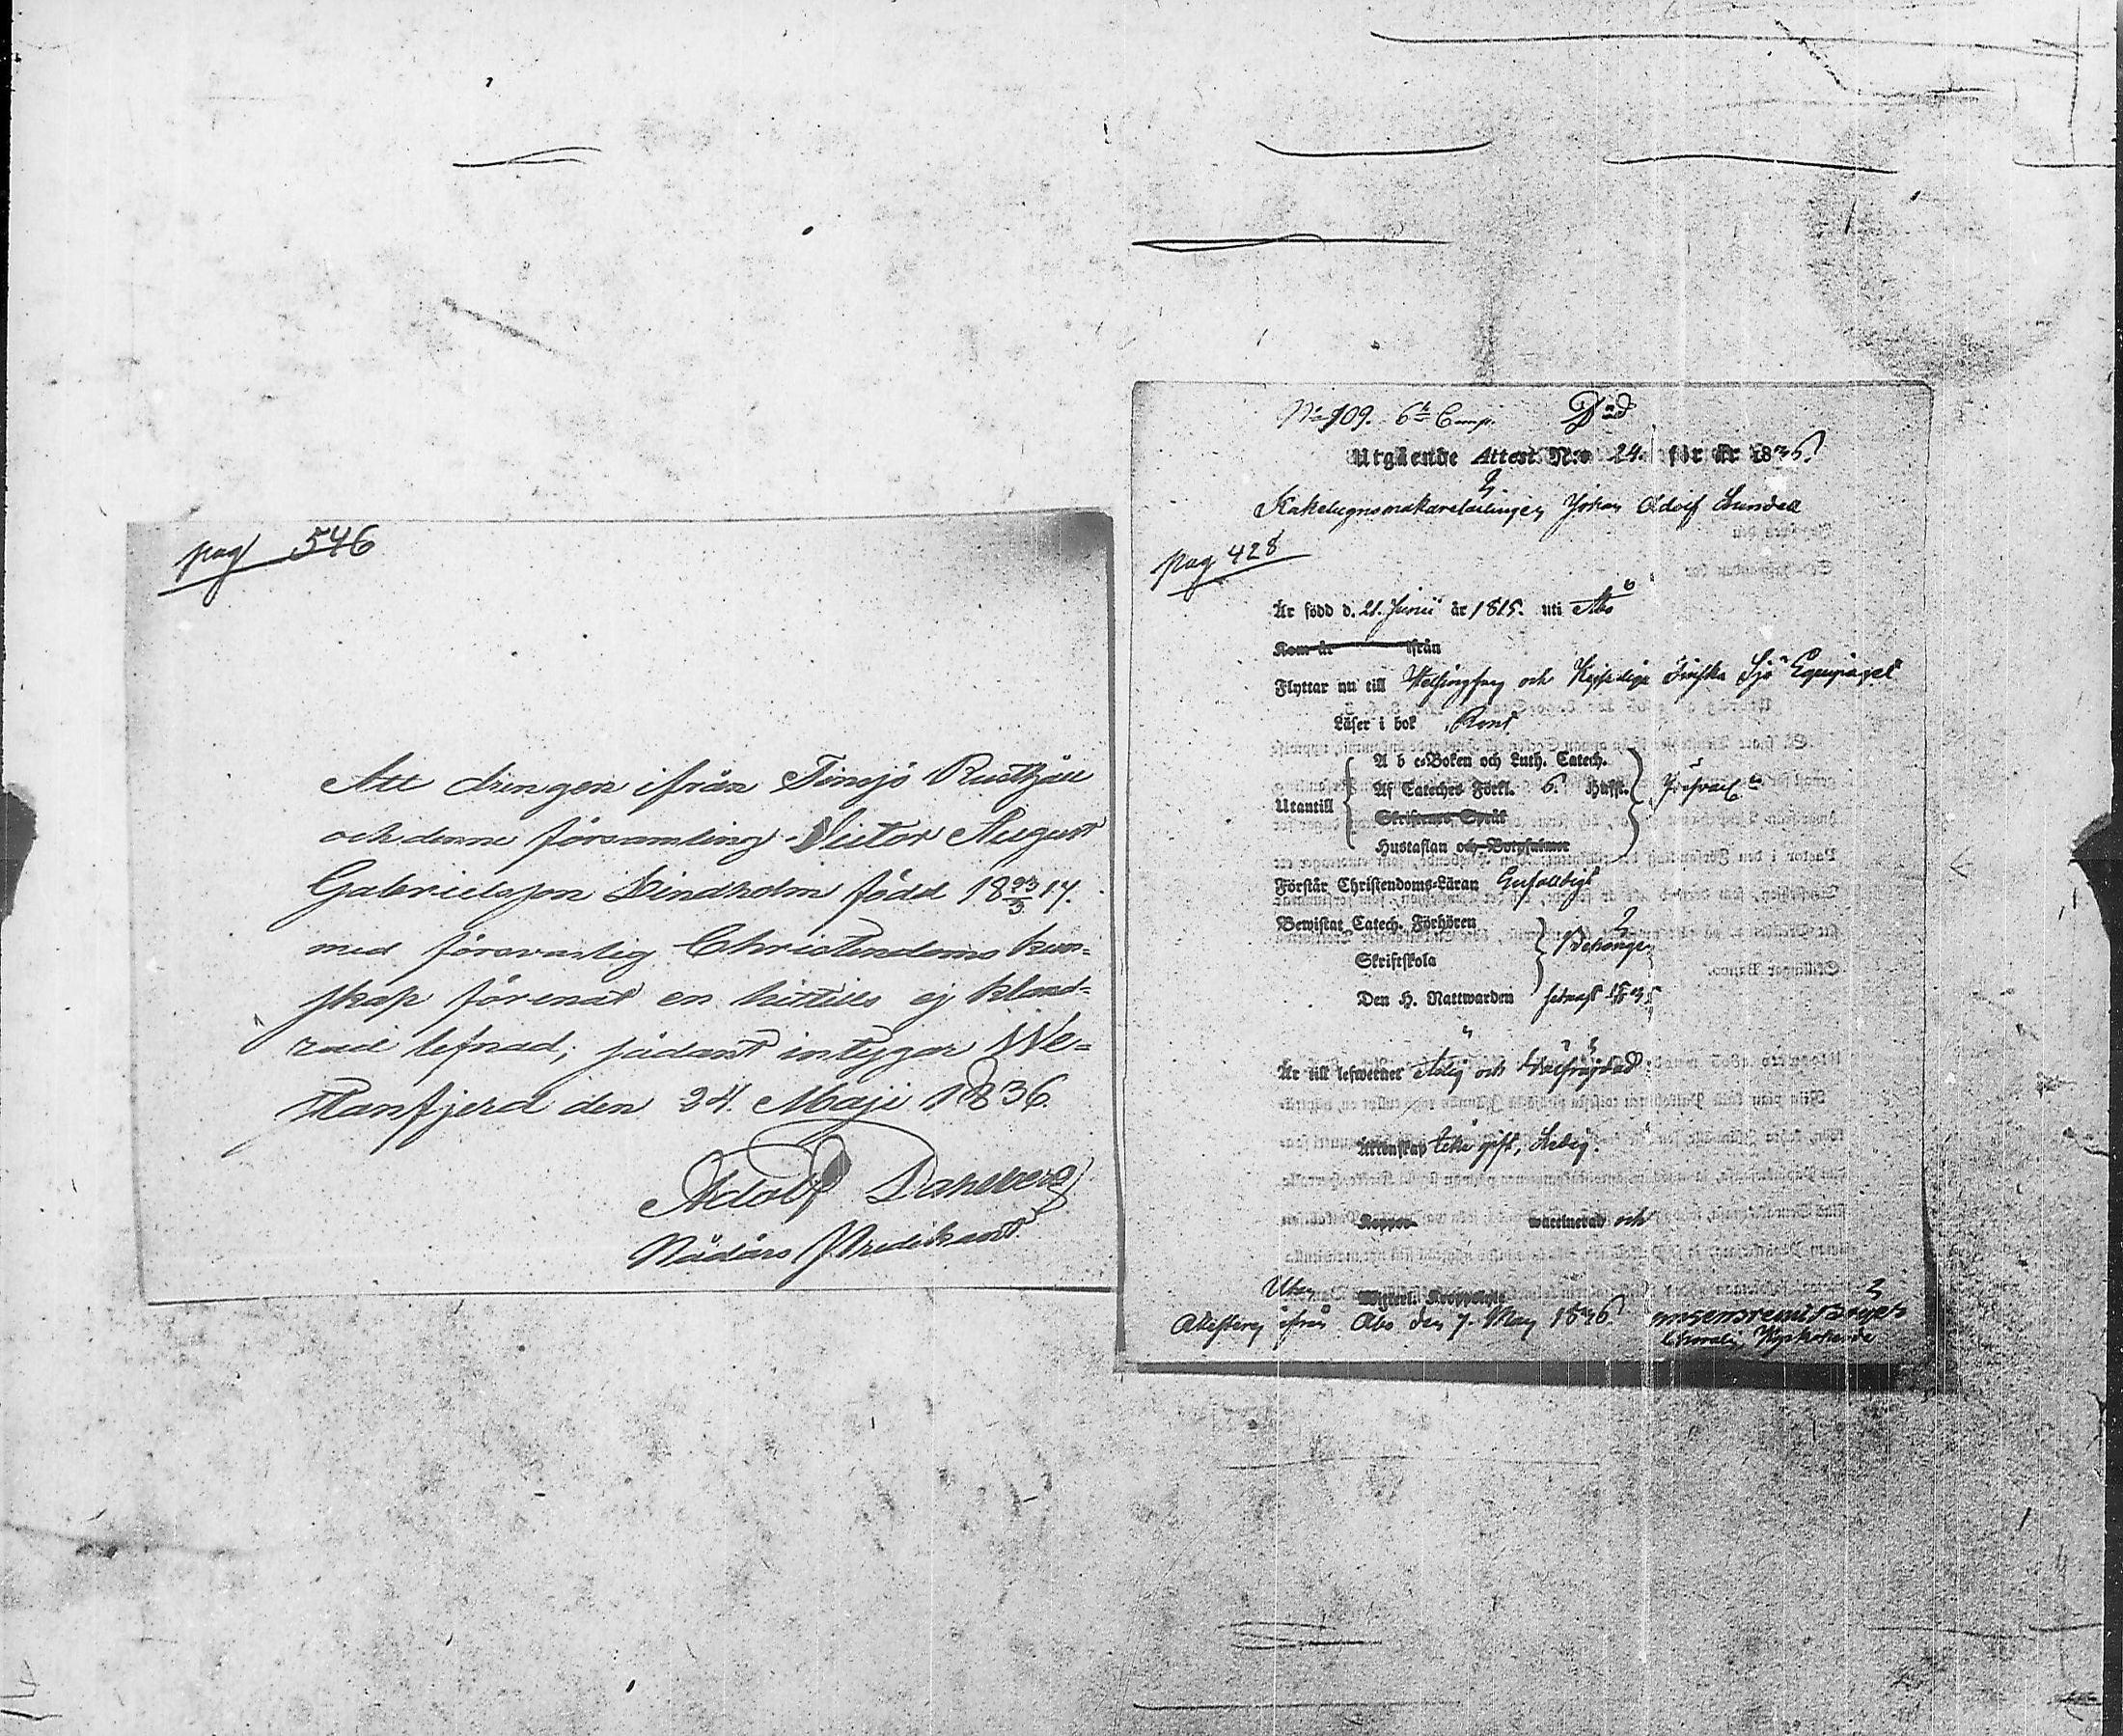 pag 546
Att drengen ifrån Finsjö Rusthåll
och denne församling Victor August
Gabrielsson Lindholm född 18 23/3 14.
med försvarlig Christendoms kun-
skap förenat en hittills ej kland-
rad lefnad; sådant intygar We-
stanfjerd den 24. Maji 1836.
Adolf Dahlberg
Nådårs Predikant.
No 109. 6te Comp. Död
Utgående Attest N:o 24. för år 1836.
Kakelugnsmakarelärlingen Johan Adolf Lundell
pag 428
Är född d. 21. Junii år 1815. uti Åbo
Kom år ifrån
Flyttar nu till Helsingfors och Kejserliga Finska Sjö Equipaget
Läser i bok Rent
A b c-Boken och Luth. Catech.
Utantill Af Cateches Förkl. 6. Hufst. Försvarl.
Skriftenes Språk
Hustaflan och Botpsalmer
Förstår Christendoms-Läran Enfaldigt
Bewistat Catech. Förhören
Skriftskola Behörigen
Den H. Nattwarden sednast
Är till lefwernet ärlig och wälfrejdad
Äktenskap Icke gift, Ledig.
Koppor waccinerad och
Utan Wittert. Kroppslyte
Attesteras ifrån Åbo den 7. May 1836.